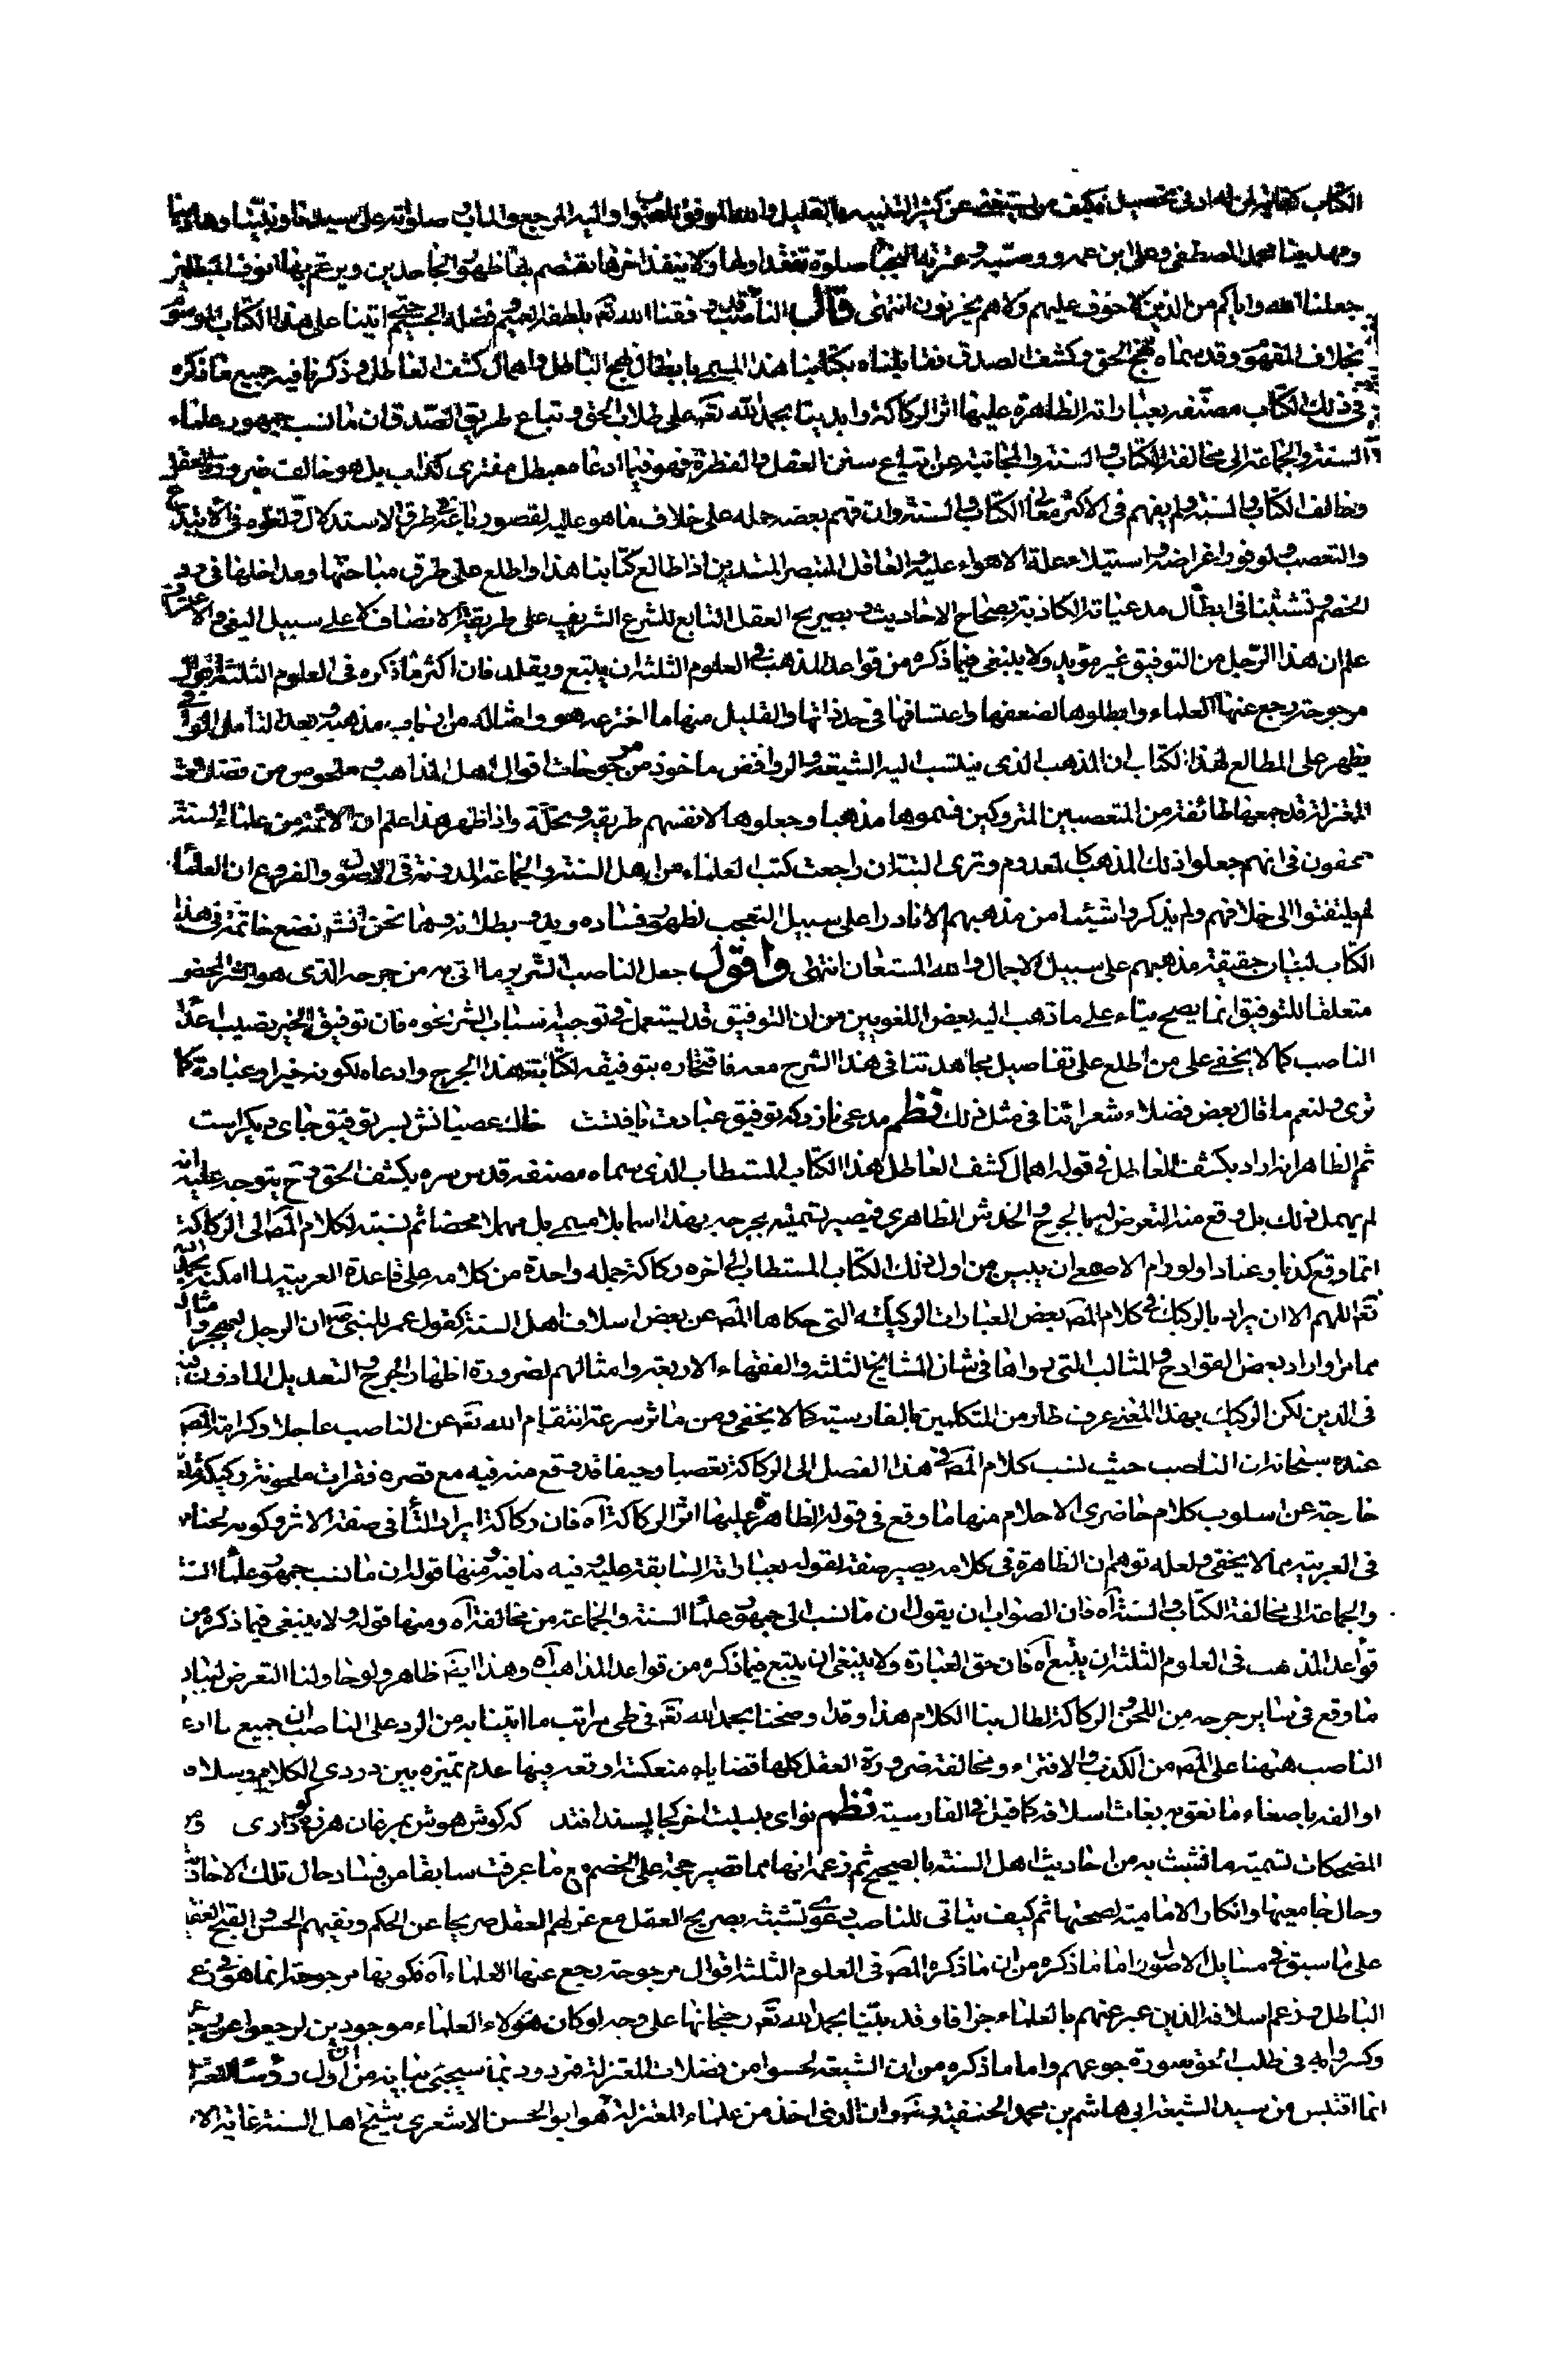 الكتاب كفاية لمن له ادنى تحصيل فكيف من يستغنى عن كثير التنبيه بالقليل والله الموفق للصواب واليه المرجع والمآب وصلواته على سيدنا ونبينا وهادينا
ومهدينا محمد المصطفى وعلى ابن عمه ووصيه وعترته النجباء صلوة تنفد اولها ولا ينفد اخرها نعتصم بها
جعلنا الله واياكم من الذين لا خوف عليهم ولا هم يحزنون انتهى قال الناصب وفقنا الله تع بلطفه العميم وفضله الجسيم اتينا على هذا الكتاب الموسوم
بخلاف المقصود وقد سماه نهج الحق وكشف الصدق فقابلناه بكتابنا هذا المسمى بابطال نهج الباطل واهمال كشف العاطل وذكرنا فيه جميع ما ذكره
فى ذلك الكتاب مصنفه بعباراته الظاهرة عليها اثر الركاكة وابدينا بحمد الله تع على طلاب الحق وتباع طريق الصدق ان ما نسب جمهور علماء
السنة والجماعة الى مخالفة الكتاب والسنة والمجانبة عن اتباع سنن العقل والفطرة فهو فيما ادعاه مبطل مفترى كذاب بل هو خالف ضرورة العقل
وخالف الكتاب والسنة ولم يفهم فى الاكثر معنى الكتاب والسنة وان فهم بعضه حمله على خلاف ما هو عليه لقصور باعه عن طرق الاستدلال ولغلوه فى الابتداع
والتعصب ولوفور اغراضه واستيلاء علة الاهواء عليه والعاقل المتبصر المتدين اذا طالع كتابنا هذا واطلع على طرق مباحثها ومداخلها فى رد
الخصم وتشبثنا فى ابطال مدعياته الكاذبة بصحاح الاحاديث وبصريح العقل التابع للشرع الشريف على طريقة الانصاف لا على سبيل البغى والاعتراف
علم ان هذا الرجل من التوفيق غير مؤيد ولا ينبغى فيما ذكره من قواعد المذهب فى العلوم الثلثة ان يتبع ويقلد فان اكثر ما ذكره فى العلوم الثلثة اقوال
مرجوحة رجع عنها العلماء وابطلوها لضعفها واعتسافها فى حد ذاتها والقليل منها ما اخترعه هو وامثاله من ارباب مذهبه وبعد التأمل الوافى
يظهر على المطالع لهذا الكتاب ان المذهب الذى ينتسب اليه الشيعة والروافض ماخوذ من مرجوحات اقوال اهل المذاهب وملحوس من فضلات
المعتزلة قد جمعها طائفة من المتعصبين المتروكين فسموها مذهبا وجعلوها لانفسهم طريقة ونحلة واذا ظهر هذا علم ان الائمة من علماء السنة
محقون فى انهم جعلوا ذلك المذهب كالمعدوم وترى البتة ان راجعت كتب العلماء من اهل السنة والجماعة المدونة فى الاصول والفروع ان العلماء
لم يلتفتوا الى خلافهم ولم يذكروا شيئا من مذهبهم الا نادرا على سبيل التعجب لظهور فساده وبدو بطلانه وها نحن نضع خاتمة فى هذا
الكتاب لبيان حقيقة مذهبهم على سبيل الاجمال والله المستعان انتهى واقول جعل الناصب الشرير ما اتى به من جرحه الذى هو الشر المحض
متعلقا للتوفيق انما يصح بناء على ما ذهب اليه بعض اللغويين من ان التوفيق قد يستعمل فى توجيه اسباب الشر نحوه فان توفيق الخير نصيب اعداء
الناصب كما لا يخفى على من اطلع على تفاصيل مجاهدتنا فى هذا الشرح معه فافتخاره بتوفيقه لكتابة هذا الجرح وادعاه لكونه خيرا وعبادة كما
ترى ولنعم ما قال بعض فضلاء شعرائنا فى مثل ذلك نظم مدعى نازد كه توفيق عبادت يافتست خاك عصيانش بسر توفيق جاى ديكراست
ثم الظاهر انه اراد بكشف العاطل فى قوله اهمال كشف العاطل هذا الكتاب المستطاب الذى سماه مصنفه قدس سره بكشف الحق وح يتوجه عليه انه
لم يهمل ذلك بل وقع منه التعرض لها بالجرح والخدش الظاهرى فيصير تسمية جرحه بهذا اسما بلا مسمى بل مهملا محضا ثم نسبته لكلام المص الى الركاكة
انما وقع كذبا وعنادا ولو رام الاصمعى ان يبين من اول ذلك الكتاب المستطاب الى اخره ركاكة جملة واحدة من كلامه على قاعدة العربية لما امكنه بحمد الله
تع اللهم الا ان يراد بالركيك فى كلام المص بعض العبارات الركيكة التى حكاها المص عن بعض اسلاف اهل السنة كقول عمر للنبى ص ان الرجل ليهجر وامثاله
مما مر او اراد بعض القوادح والمثالب التى رواها فى شان المشايخ الثلثة والفقهاء الاربعة وامثالهم لضرورة اظهار الجرح والتعديل الماذون فيه
فى الدين لكن الركيك بهذا المعنى عرف طار من المتكلمين بالفارسية كما لا يخفى ومن ماثر سرعة انتقام الله تع عن الناصب عاجلا وكرامة المص
عنده سبحانه ان الناصب حيث نسب كلام المص فى هذا الفصل الى الركاكة تعصبا وحيفا قد وقع منه فيه مع قصره فقرات ملحونة ركيكة
خارجة عن اسلوب كلام حاضرى الاحلام منها ما وقع فى قوله الظاهرة عليها اثر الركاكة آه فان ركاكة ايراد التأ فى صفة الاثر وكونه لحناء
فى العربية مما لا يخفى ولعله توهم ان الظاهرة فى كلامه يصير صفة لقوله بعباراته السابقة عليه وفيه ما فيه ومنها قوله ان ما نسب جمهور علماء السنة
والجماعة الى مخالفة الكتاب والسنة آه فان الصواب ان يقول ان ما نسب الى جمهور علماء السنة والجماعة من مخالفة آه ومنها قوله ولا ينبغى فيما ذكره من
قواعد المذهب فى العلوم الثلثة ان يتبع آه فان حق العبارة ولا ينبغى ان يتبع فيما ذكره من قواعد المذاهب آه وهذا ايضا ظاهر ولو حاولنا التعرض لبيان
ما وقع فى سائر جرحه من اللحن والركاكة لطال بنا الكلام هذا وقد اوضحنا بحمد الله تع فى طى مراتب ما اتينا به من الرد على الناصب ان جميع ما ادعاه
الناصب ههنا على المص من الكذب والافتراء ومخالفة ضرورة العقل كلها قضاياه منعكسة اوقعه فيها عدم تميزه بين دردى الكلام وسلافه
او الفه باصغاء ما نعق به بغاث اسلافه كما قيل فى الفارسية نظم نواى بلبلت اخر كجا پسند افتد كه كوش هوش بمرغان هرزه كو دارى ومن
المضحكات تسمية ما تشبث به من احاديث اهل السنة بالصحيح ثم زعمه انها مما تصير حجة على الخصم مع ما عرفت سابقا من فساد حال تلك الاحاديث
وحال جامعيها وانكار الامامية لصحتها ثم كيف يتاتى للناصب دعوى تشبثه بصريح العقل مع عزلهم العقل صريحا عن الحكم ونفيهم الحسن والقبح العقلى
على ما سبق فى مسايل الاصول واما ما ذكره من ان ما ذكره المص فى العلوم الثلثة اقوال مرجوحة رجع عنها العلماء آه فكونها مرجوحة انما هو فى زعمه
الباطل وزعم اسلافه الذين عبر عنهم بالعلماء جزافا وقد بينا بحمد الله تع رجحانها على وجه لو كان هؤلاء العلماء موجودين لرجعوا عن
وكسروا به فى طلب الحق سورة جوعهم واما ما ذكره من ان الشيعة لحسوا من فضلات المعتزلة فمردود بما سيجئ بيانه من ان اول رؤساء المعتزلة
انما اقتبس من سيد الشيعة ابى هاشم بن محمد الحنفية رض وان الذى اخذ من علماء المعتزلة هو ابو الحسن الاشعرى شيخ اهل السنة غاية الامر